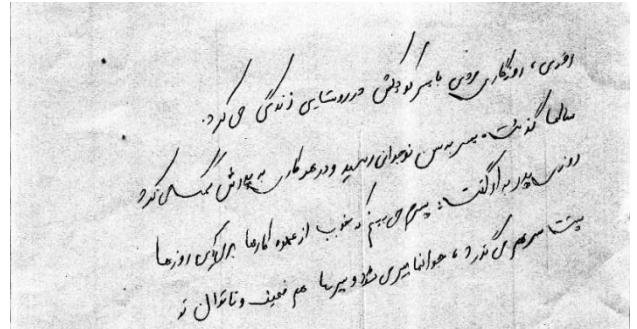 روزی، روزگاری مردی با پسر کوچکش در روستایی زندگی می کرد.
سالها گذشت. پسر به سن نوجوانی رسید و در هر کاری به پدرش کمک می کرد
روزی پدر به او گفت: پسرم می بینم که خوب از عهده کارها برمی آیی روزها
پشت سر هم می گذرد، جوانها پیر می شوند و پیرها هم ضعیف و ناتوان تر